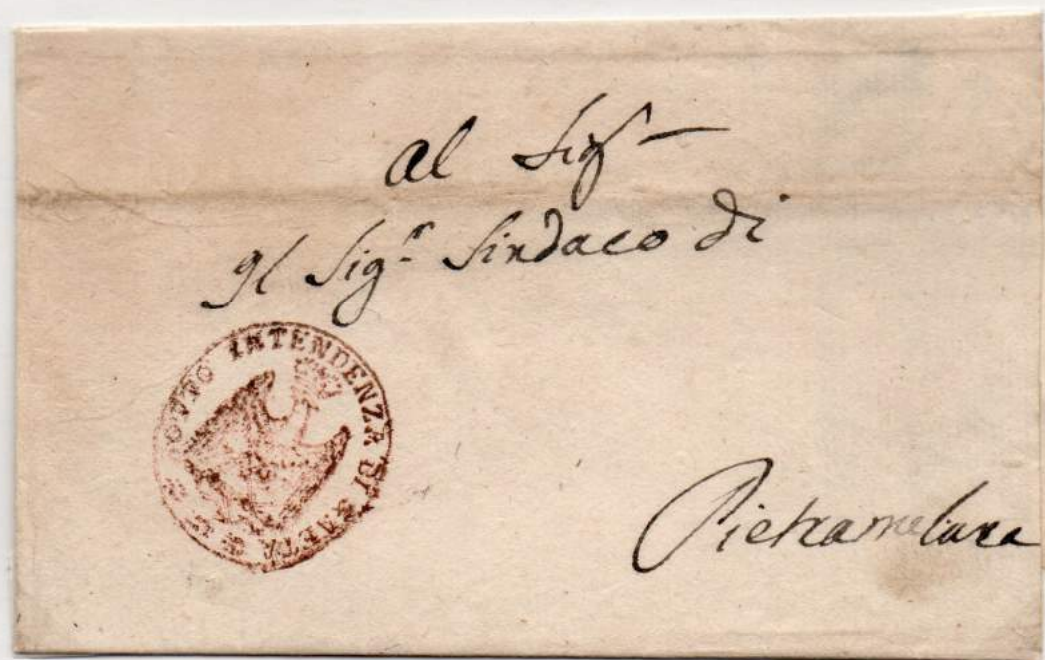 Al Sig.r
Il Sig.r Sindaco di
SOTTO INTENDENZA DI GAETA
Pietramelara